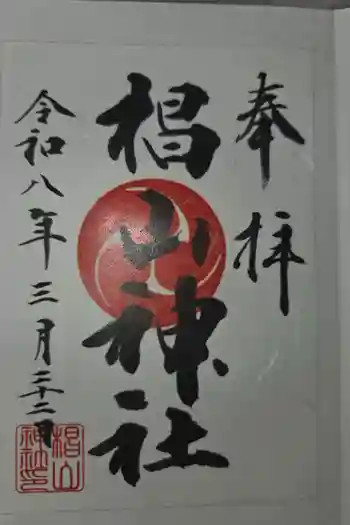 奉拝
椙山神社
令和八年三月二十二日
椙山
神社印